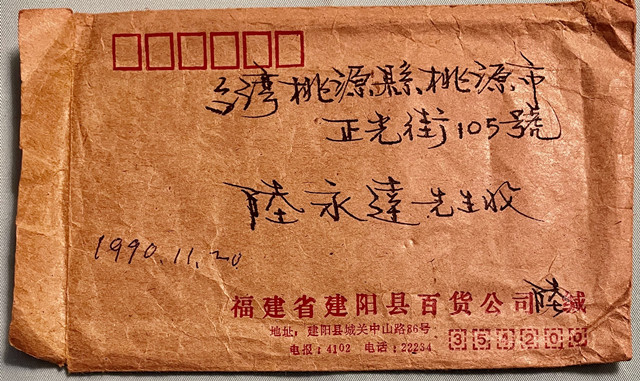 台湾桃源縣桃源市
正光街105號
陸永達先生收
1990.11.20
福建省建阳县百货公司陸缄
地址：建阳县城关中山路86号
电报：4102 电话：22234
354200